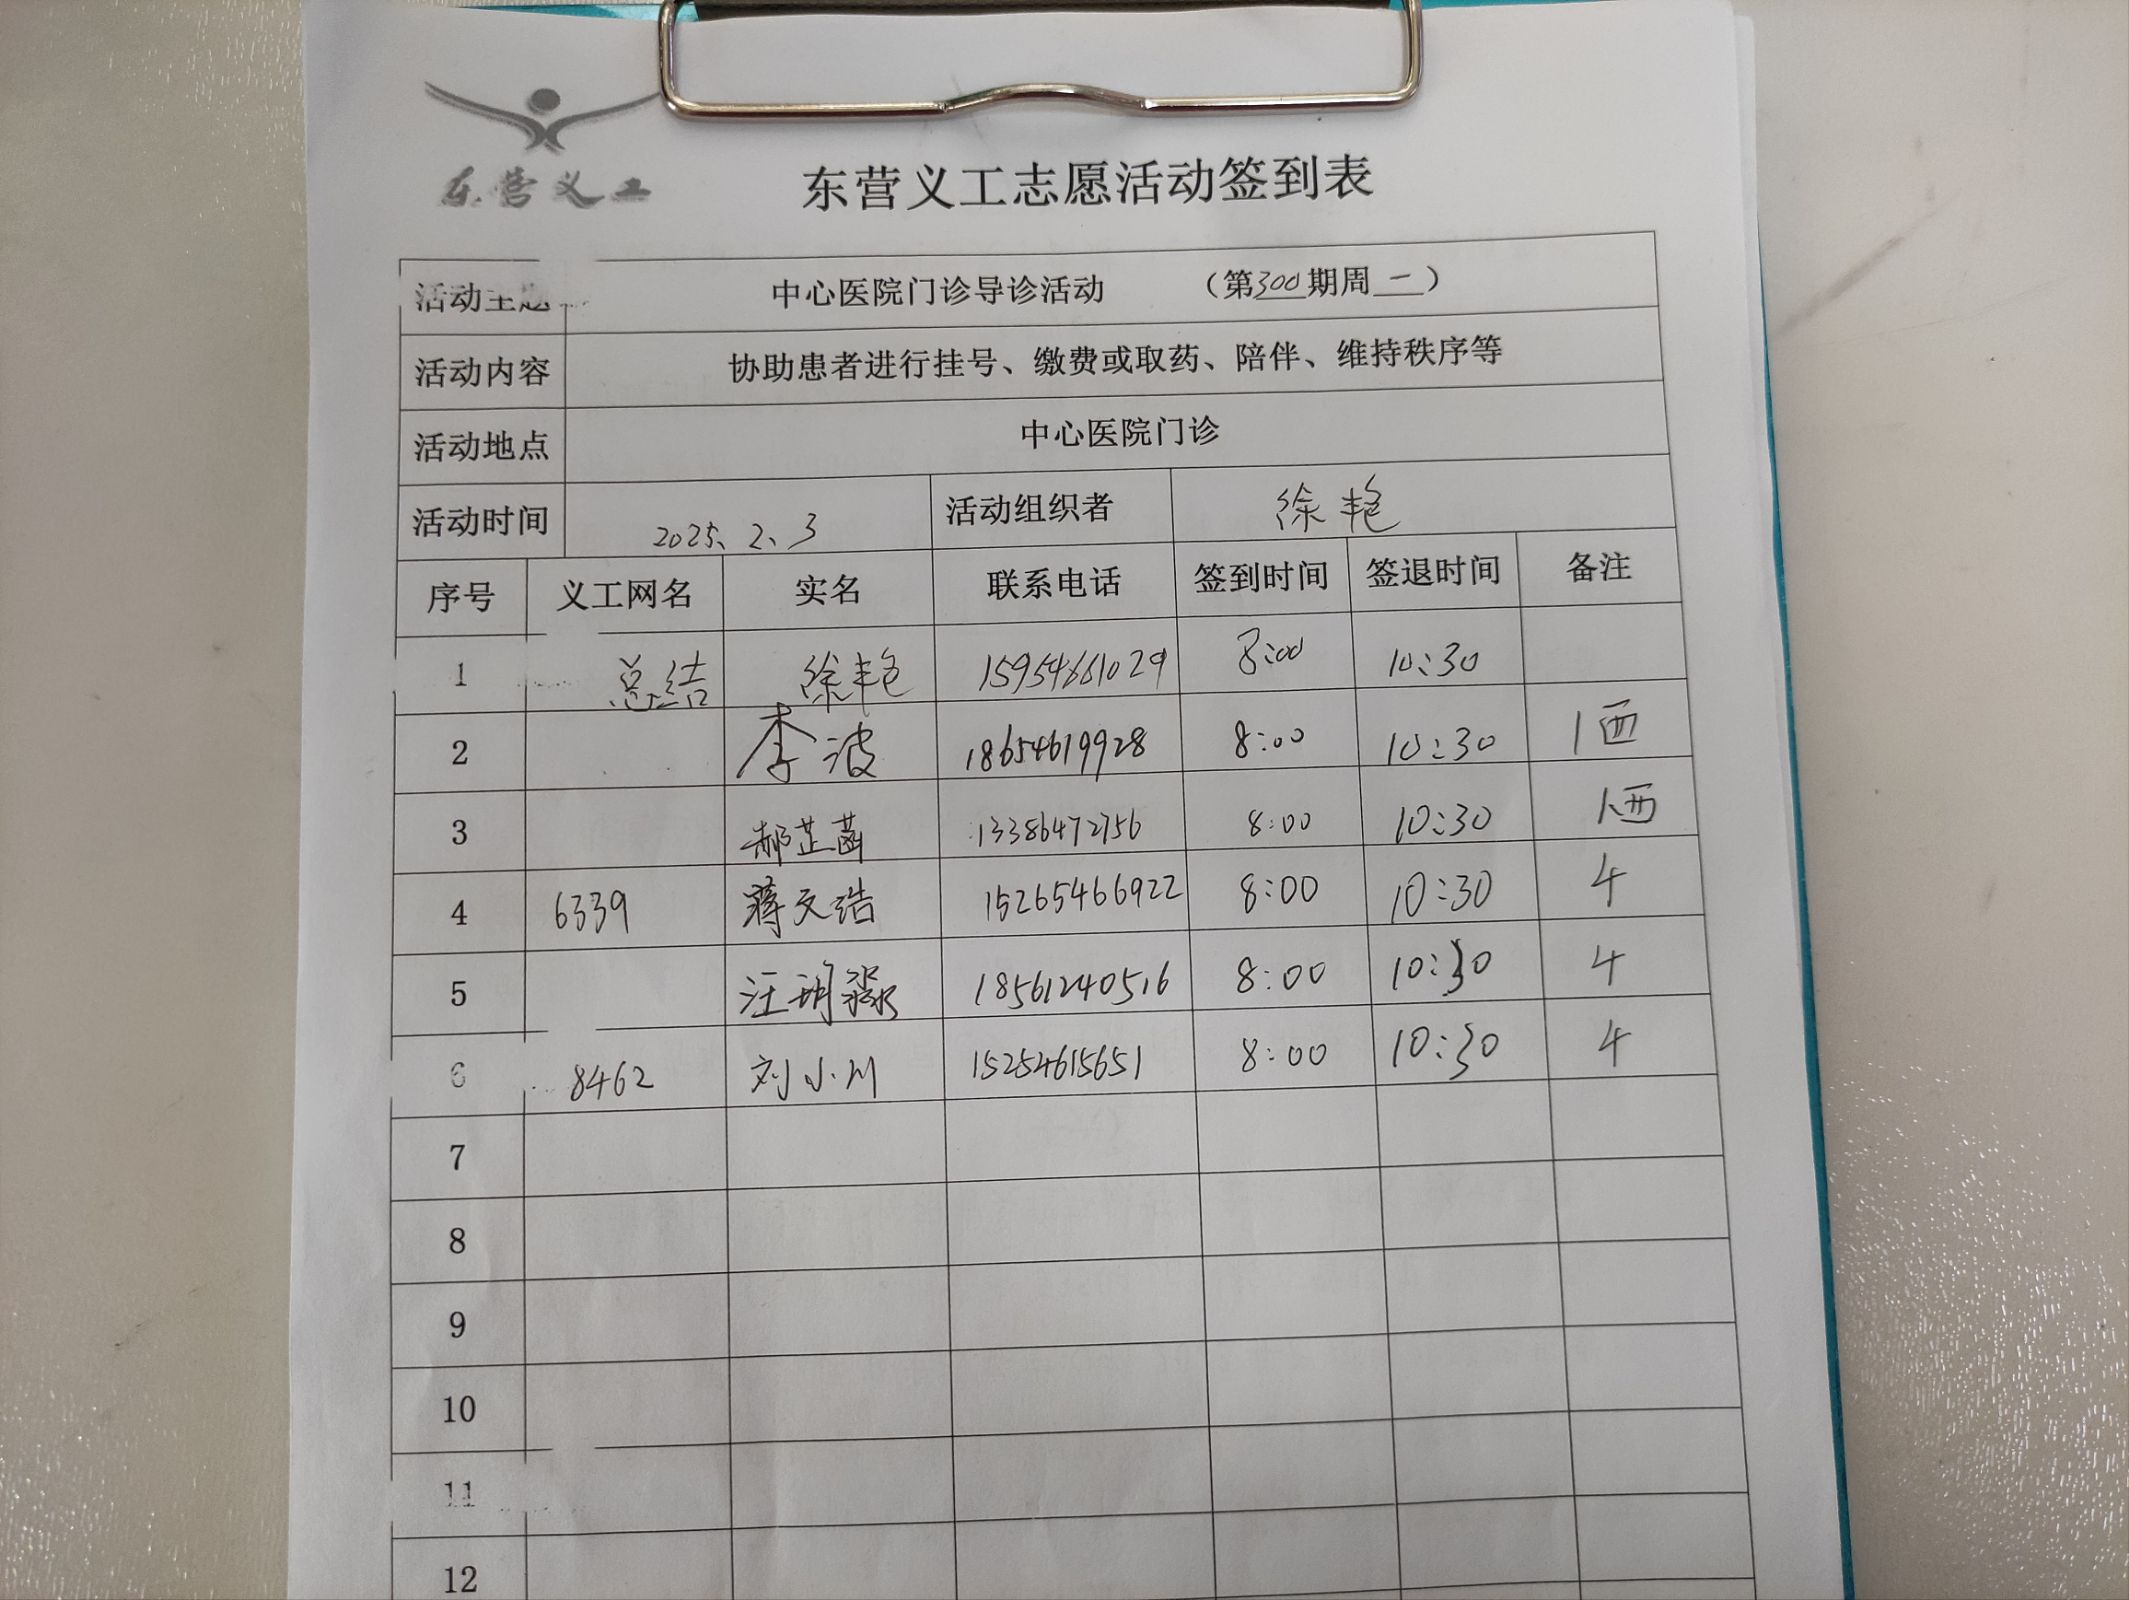 东营义工
东营义工志愿活动签到表
活动主题 中心医院门诊导诊活动 （第300期周一）
活动内容 协助患者进行挂号、缴费或取药、陪伴、维持秩序等
活动地点 中心医院门诊
活动时间 2025.2.3 活动组织者 徐艳
序号 义工网名 实名 联系电话 签到时间 签退时间 备注
1 总结 徐艳 15954661029 8:00 10:30
2 李波 18654619928 8:00 10:30 1西
3 郝芷菡 13386472756 8:00 10:30 1西
4 6339 蒋文浩 15265466922 8:00 10:30 4
5 汪玥 18561240516 8:00 10:30 4
6 8462 刘小川 15254615651 8:00 10:30 4
7
8
9
10
11
12